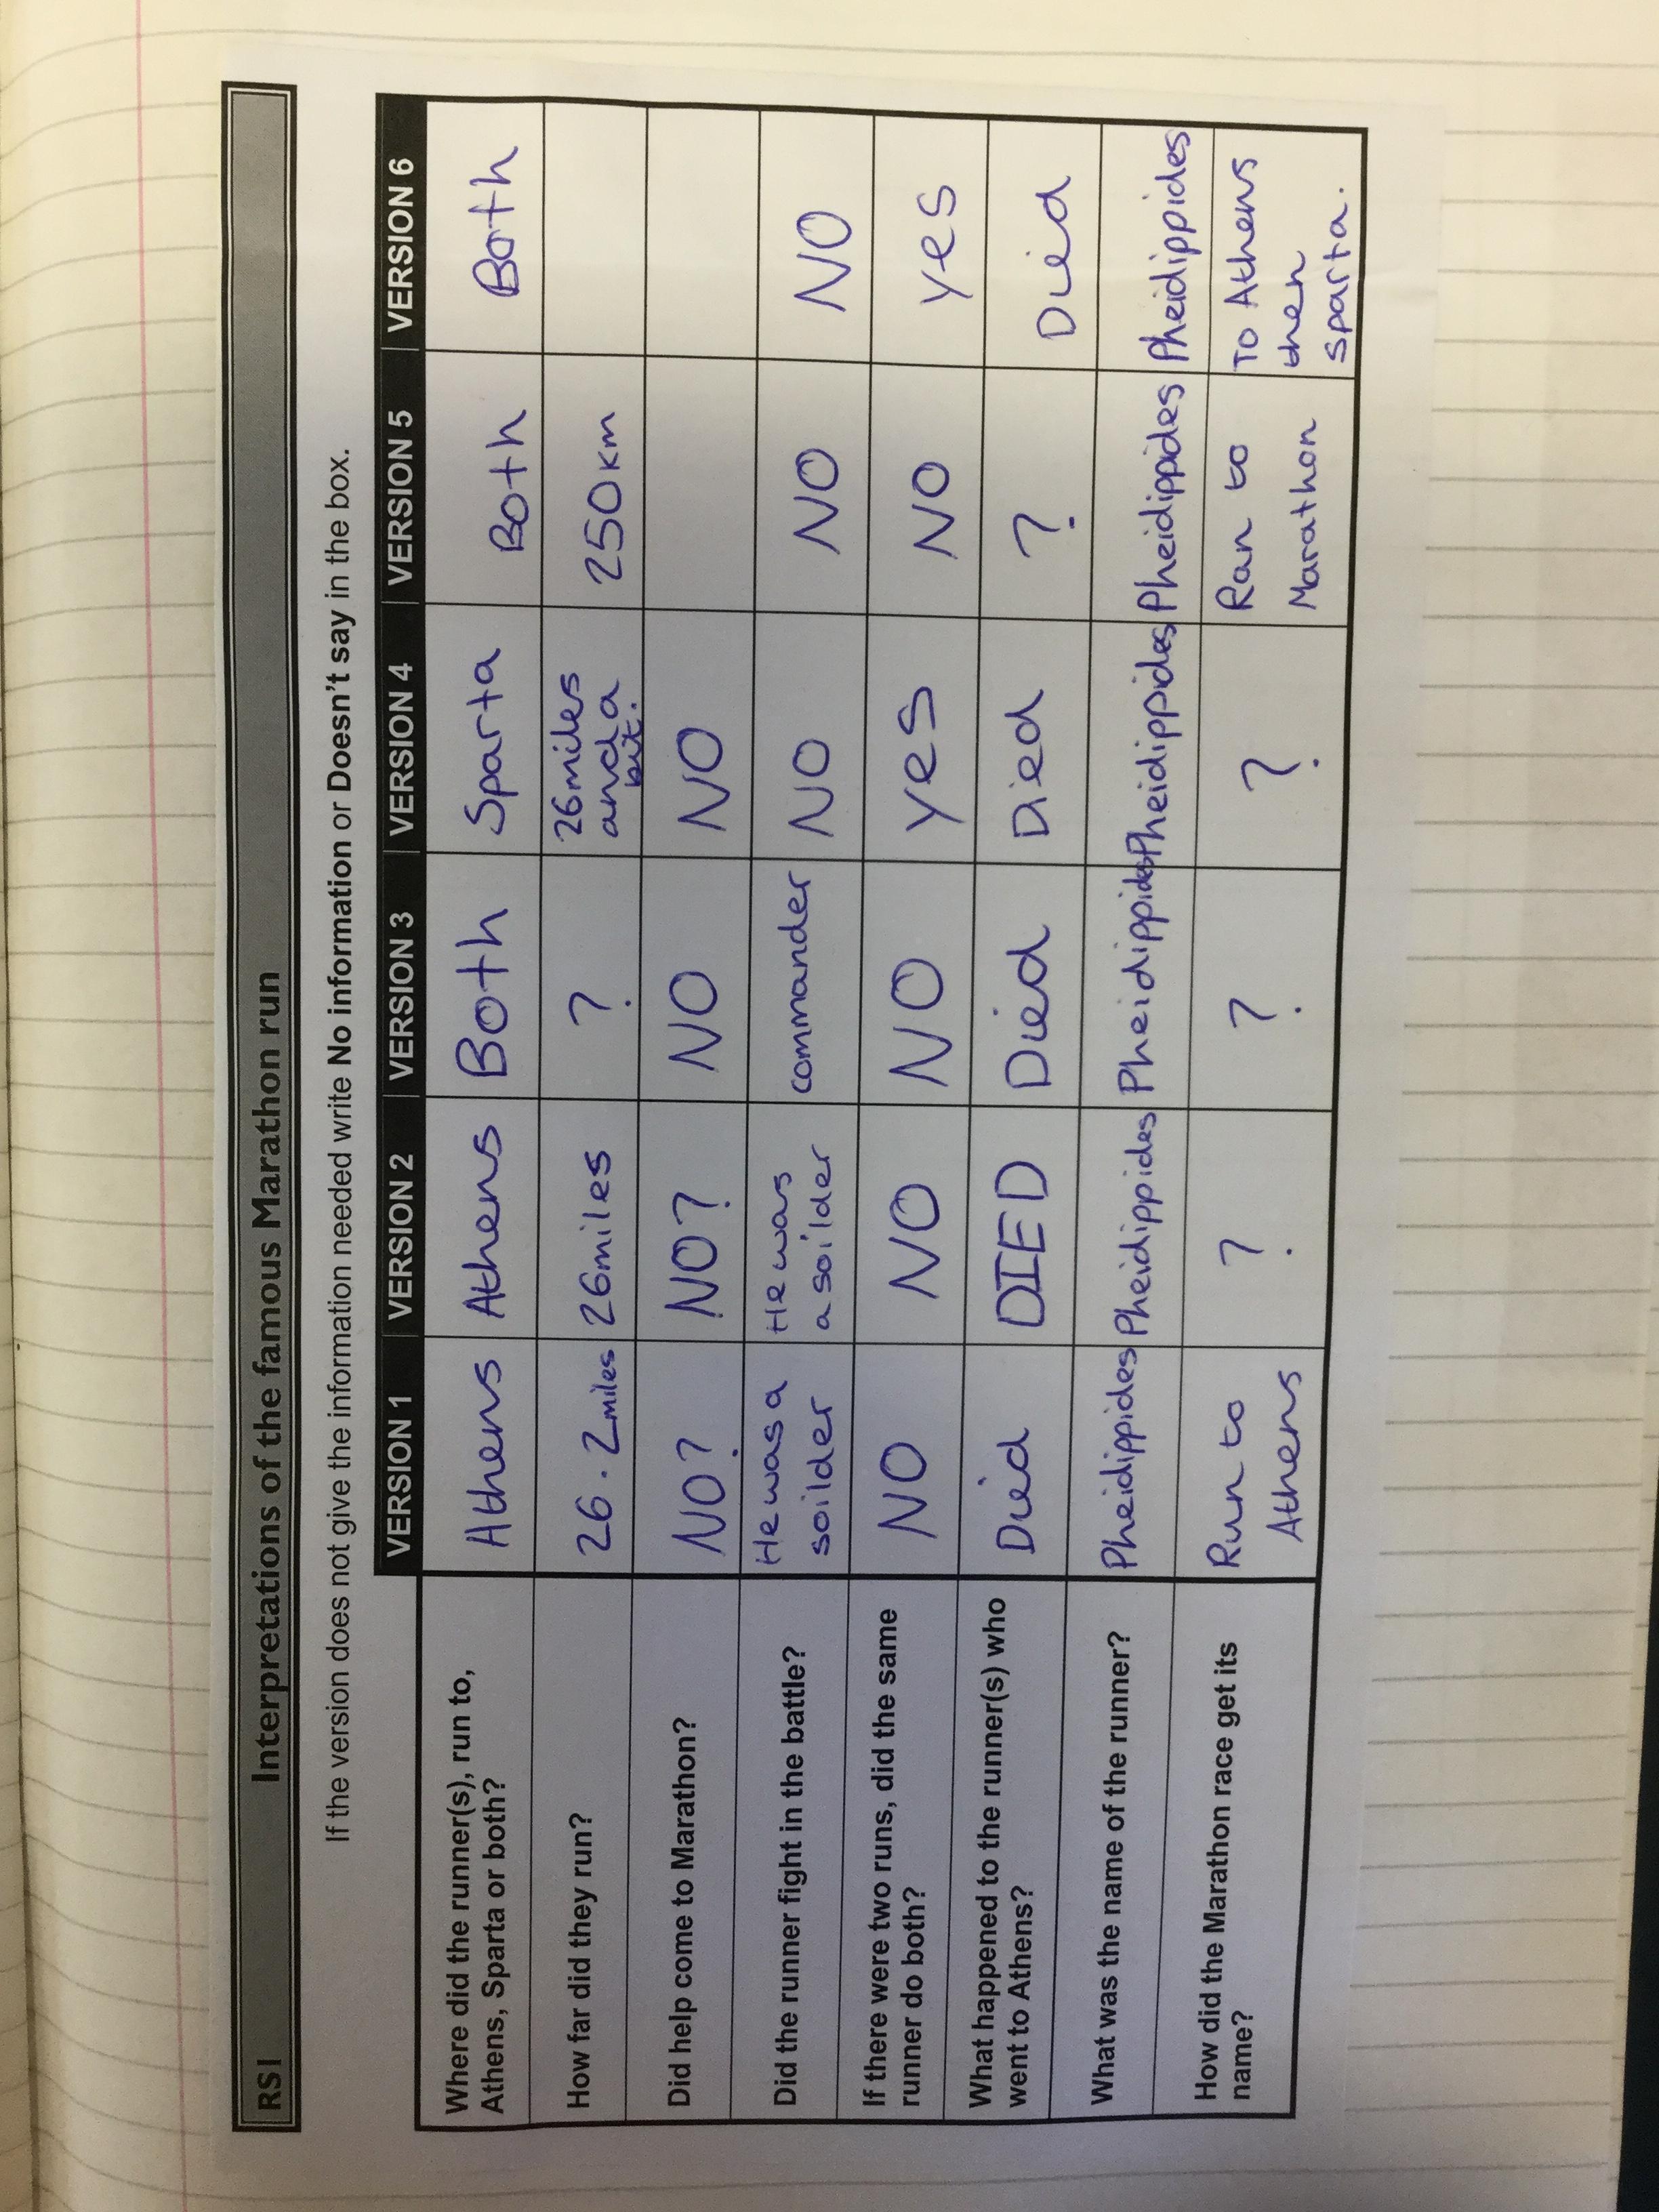 RSI Interpretations of the famous Marathon run
If the version does not give the information needed write No information or Doesn't say in the box.
VERSION 1 VERSION 2 VERSION 3 VERSION 4 VERSION 5 VERSION 6
Where did the runner(s), run to,
Athens, Sparta or both?
Athens Athens Both Sparta Both Both
How far did they run?
26.2miles 26miles ? 26miles
and a
bit.
250km
Did help come to Marathon?
NO? NO? NO NO
Did the runner fight in the battle?
He was a
soilder
He was
a soilder
commander NO NO NO
If there were two runs, did the same
runner do both?
NO NO NO Yes NO Yes
What happened to the runner(s) who
went to Athens?
Died DIED Died Died ? Died
What was the name of the runner?
Pheidippides Pheidippides Pheidippides Pheidippides Pheidippides Pheidippides
How did the Marathon race get its
name?
Run to
Athens
? ? ? Ran to
Marathon
To Athens
then
Sparta.